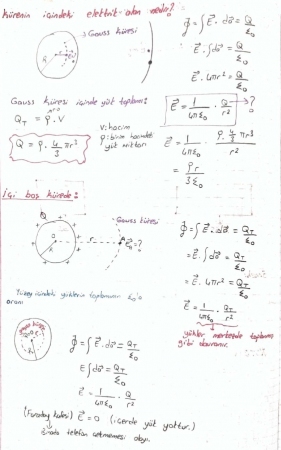 Kürenin içindeki elektrik alan nedir?
Gauss küresi
Φ = ∫ E⃗ . da⃗ = Q/ε₀
E⃗ . ∫ da⃗ = Q/ε₀
E⃗ . 4πr² = Q/ε₀
Gauss küresi içinde yük toplamı:
Q_T = ρ . V
V: hacim
ρ: birim hacimdeki yük miktarı
Q = ρ . 4/3 πr³
E⃗ = 1/4πε₀ . Q/r² → ?
E⃗ = 1/4πε₀ . ρ . 4/3 πr³ / r²
= ρr/3ε₀
İçi boş kürede:
Gauss küresi
Q
R
r
E⃗ = ?
Φ = ∫ E⃗ . da⃗ = Q_T/ε₀
= E⃗ . ∫ da⃗ = Q_T/ε₀
= E⃗ . 4πr² = Q_T/ε₀
E⃗ = 1/4πε₀ . Q_T/r²
Yüzey içindeki yüklerin toplamının ε₀'a
oranı
yükler merkezde toplanmış
gibi davranır.
Φ = ∫ E⃗ . da⃗ = Q_T/ε₀
E ∫ da⃗ = Q_T/ε₀
E⃗ = 1/4πε₀ . Q/r²
(Faraday kafesi) E⃗ = 0 (içerde yük yoktur.)
Burada telefon çekmemesi olayı.